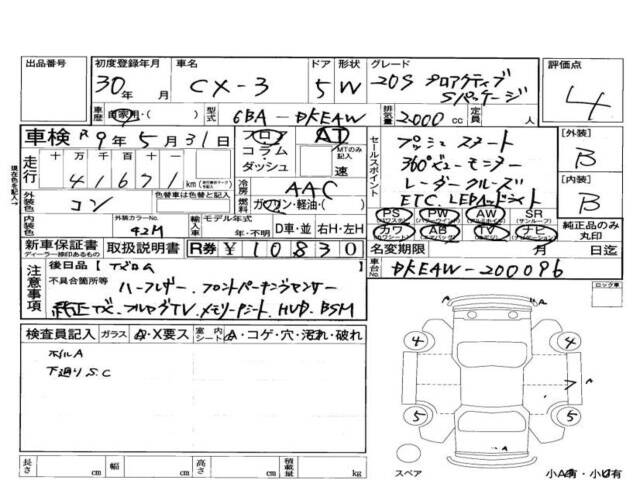 出品番号 初度登録年月 車名 ドア 形状 グレード 評価点
30年 月 CX-3 5 W 20S プロアクティブ
Sパッケージ 4
車歴 自家用・( ) 型式 6BA-DKEAW 排気量 2000 cc 定員 人
車検 R9年5月31日 フロア AT
コラム・ダッシュ MTのみ記入 速
セールスポイント プッシュスタート
360°ビューモニター
レーダークルーズ
[外装]
B
走行 十万千百十一
41671 km
現在色を記入→
外装色 コン 色替車は色替と記入
冷房 AAC
燃料 ガソリン・軽油・( )
[内装]
B
内装色 外装カラーNo. 42M 輸入車 モデル年式 年・不明 D車・並 右H・左H
PS PW AW SR (サンルーフ)
カワ AB TV ナビ
純正品のみ丸印
新車保証書 ディーラー捺印あるもの 取扱説明書 R券 ¥10830
名変期限 月 日迄
車台No. DKEAW-200096
注意事項 後日品【
不具合箇所等 ハーフレザー、フロントパーキングセンサー
フルセグTV、メモリーナビ HUD、BSM
ロック車
検査員記入 ガラス A・X要ス 室内シート A・コゲ・穴・汚れ・破れ
ホイルA
下廻りS.C
A
4 4
A
5 5
A
スペア
小A有・小U有
長さ cm 幅 cm 高さ cm 積載量 kg